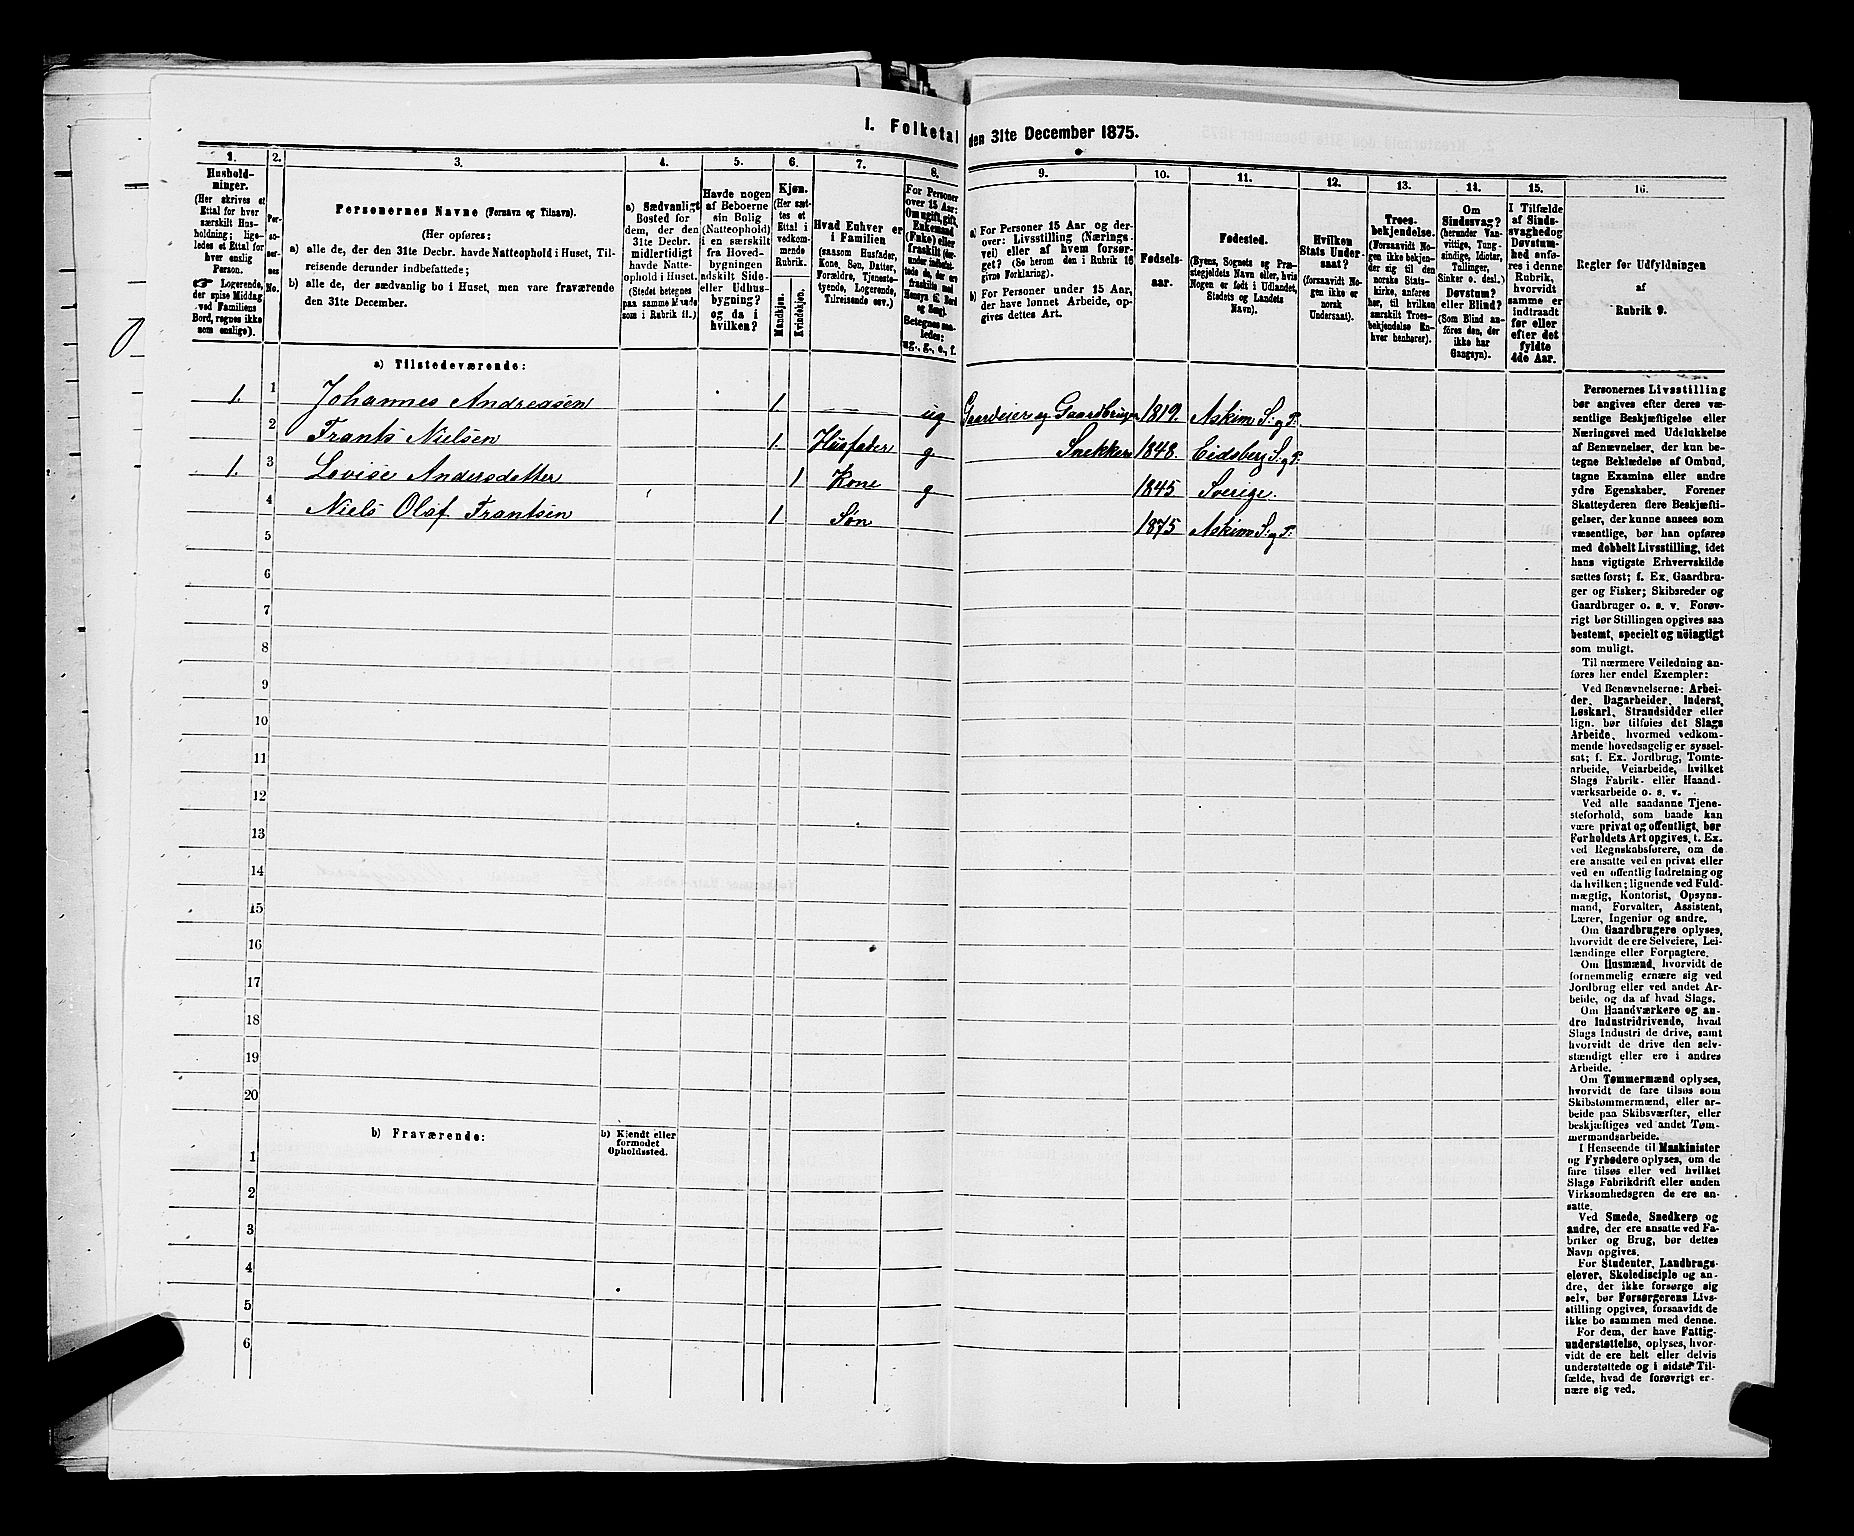 I. Folketal den 31te December 1875.
1. 2. 3. 4. 5. 6. 7. 8. 9. 10. 11. 12. 13. 14. 15. 16.
Husholdninger.
(Her skrives et Ettal for hver særskilt Husholdning; ligeledes et Ettal for hver enslig Person.
☛ Logerende, der spise Middag ved Familiens Bord, regnes ikke som enslige).
Personernes No.
Personernes Navne (Fornavn og Tilnavn).
(Her opføres:
a) alle de, der den 31te Decbr. havde Natteophold i Huset, Tilreisende derunder indbefattede;
b) alle de, der sædvanlig bo i Huset, men vare fraværende den 31te December.
a) Sædvanligt Bosted for dem, der den 31te Decbr. midlertidigt havde Natteophold i Huset.
(Stedet betegnes paa samme Maade som i Rubrik 11.)
Havde nogen af Beboerne sin Bolig (Natteophold) i en særskilt fra Hovedbygningen adskilt Side- eller Udhusbygning? og da i hvilken?
Kjøn.
(Her sættes et Ettal i vedkommende Rubrik.
Mandkjøn.
Kvindekjøn.
Hvad Enhver er i Familien
(saasom Husfader, Kone, Søn, Datter, Forældre, Tjenestetyende, Logerende, Tilreisende osv.)
For Personer over 15 Aar: Om ugift, gift, Enkemand (Enke) eller fraskilt
Betegnes saaledes: ug., g., e., f.
a) For Personer 15 Aar og derover: Livsstilling (Næringsvei) eller af hvem forsørget? (Se herom den i Rubrik 16 givne Forklaring).
b) For Personer under 15 Aar, der have lønnet Arbeide, opgives dettes Art.
Fødselsaar.
Fødested.
(Byens, Sognets og Præstegjeldets Navn eller, hvis Nogen er født i Udlandet, Stedets og Landets Navn).
Hvilken Stats Undersaat?
(forsaavidt Nogen ikke er norsk Undersaat).
Troesbekjendelse.
(Forsaavidt Nogen ikke bekjender sig til den norske Statskirke, anføres her, til hvilken særskilt Troesbekjendelse Enhver henhører).
Om Sindssvag? (herunder Vanvittige, Tungsindige, Idioter, Tullinger, Sinker o. desl.)
Døvstum? eller Blind?
(Som Blind anføres den, der ikke har Gangsyn).
I Tilfælde af Sindssvaghed og Døvstumhed anføres i denne Rubrik, hvorvidt samme er indtraadt før eller efter det fyldte 4de Aar.
Regler for Udfyldningen
af
Rubrik 9.
a) Tilstedeværende:
1. 1 Johannes Andreasen 1. — ug Gaardeier og Gaardbruger 1819. Askim S: og P:
2 Frants Nielsen 1. Husfader g Snekker 1848. Eidsberg S: og P.
1. 3 Lovise Andersdatter 1 Kone g 1845 Sverige.
4 Niels Olaf Frantsen 1 Søn 1875 Askim S: og P:
5
6
7
8
9
10
11
12
13
14
15
16
17
18
19
20
b) Fraværende:
b) Kjendt eller formodet Opholdssted.
1
2
3
4
5
6
Personernes Livsstilling
bør angives efter deres væ-
sentlige Beskjæftigelse eller
Næringsvei med Udelukkelse
af Benævnelser, der kun be-
tegne Beklædelse af Ombud,
tagne Examina eller andre
ydre Egenskaber. Forener
Skatteyderen flere Beskjæfti-
gelser, der kunne ansees som
væsentlige, bør han opføres
med dobbelt Livsstilling, idet
hans vigtigste Erhvervskilde
sættes først; f. Ex. Gaardbru-
ger og Fisker; Skibsreder og
Gaardbruger o. s. v. Forøv-
rigt bør Stillingen opgives saa
bestemt, specielt og nöiagtigt
som muligt.
Til nærmere Veiledning an-
føres her endel Exempler:
Ved Benævnelserne: Arbei-
der, Dagarbeider, Inderst,
Løskarl, Strandsidder eller
lign. bør tilføies det Slags
Arbeide, hvormed vedkom-
mende hovedsagelig er syssel-
sat; f. Ex. Jordbrug, Tomte-
arbeide, Veiarbeide, hvilket
Slags Fabrik- eller Haand-
værksarbeide o. s. v.
Ved alle saadanne Tjene-
steforhold, som baade kan
være privat og offentligt, bør
Forholdets Art opgives, t. Ex.
ved Regnskabsførere, om de
ere ansatte ved en privat eller
ved en offentlig Indretning og
da hvilken; lignende ved Fuld-
mægtig, Kontorist, Opsyns-
mand, Forvalter, Assistent,
Lærer, Ingeniør og andre.
Om Gaardbrugere oplyses,
hvorvidt de ere Selveiere, Lei-
lændinge eller Forpagtere.
Om Husmænd, hvorvidt de
fornemmelig ernære sig ved
Jordbrug eller ved andet Ar-
beide, og da af hvad Slags.
Om Haandværkere og an-
dre Industridrivende, hvad
Slags Industri de drive, samt
hvorvidt de drive den selv-
stændigt eller ere i andres
Arbeide.
Om Tømmermænd oplyses,
hvorvidt de fare tilsøs som
Skibstømmermænd, eller ar-
beide paa Skibsværfter, eller
beskjæftiges ved andet Tøm-
mermandsarbeide.
I Henseende til Maskinister
og Fyrbødere oplyses, om de
fare tilsøs eller ved hvilket
Slags Fabrikdrift eller anden
Virksomhedsgren de ere an-
satte.
Ved Smede, Snedkere og
andre, der ere ansatte ved Fa-
briker og Brug, bør dettes
Navn opgives.
For Studenter, Landbrugs-
elever, Skoledisciple og an-
dre, der ikke forsørge sig
selv, bør Forsørgerens Livs-
stilling opgives, forsaavidt de
ikke bo sammen med denne.
For dem, der have Fattig-
understøttelse, oplyses, hvor-
vidt de ere helt eller delvis
understøttede og i sidste Til-
fælde, hvad de forøvrigt er-
nære sig ved.